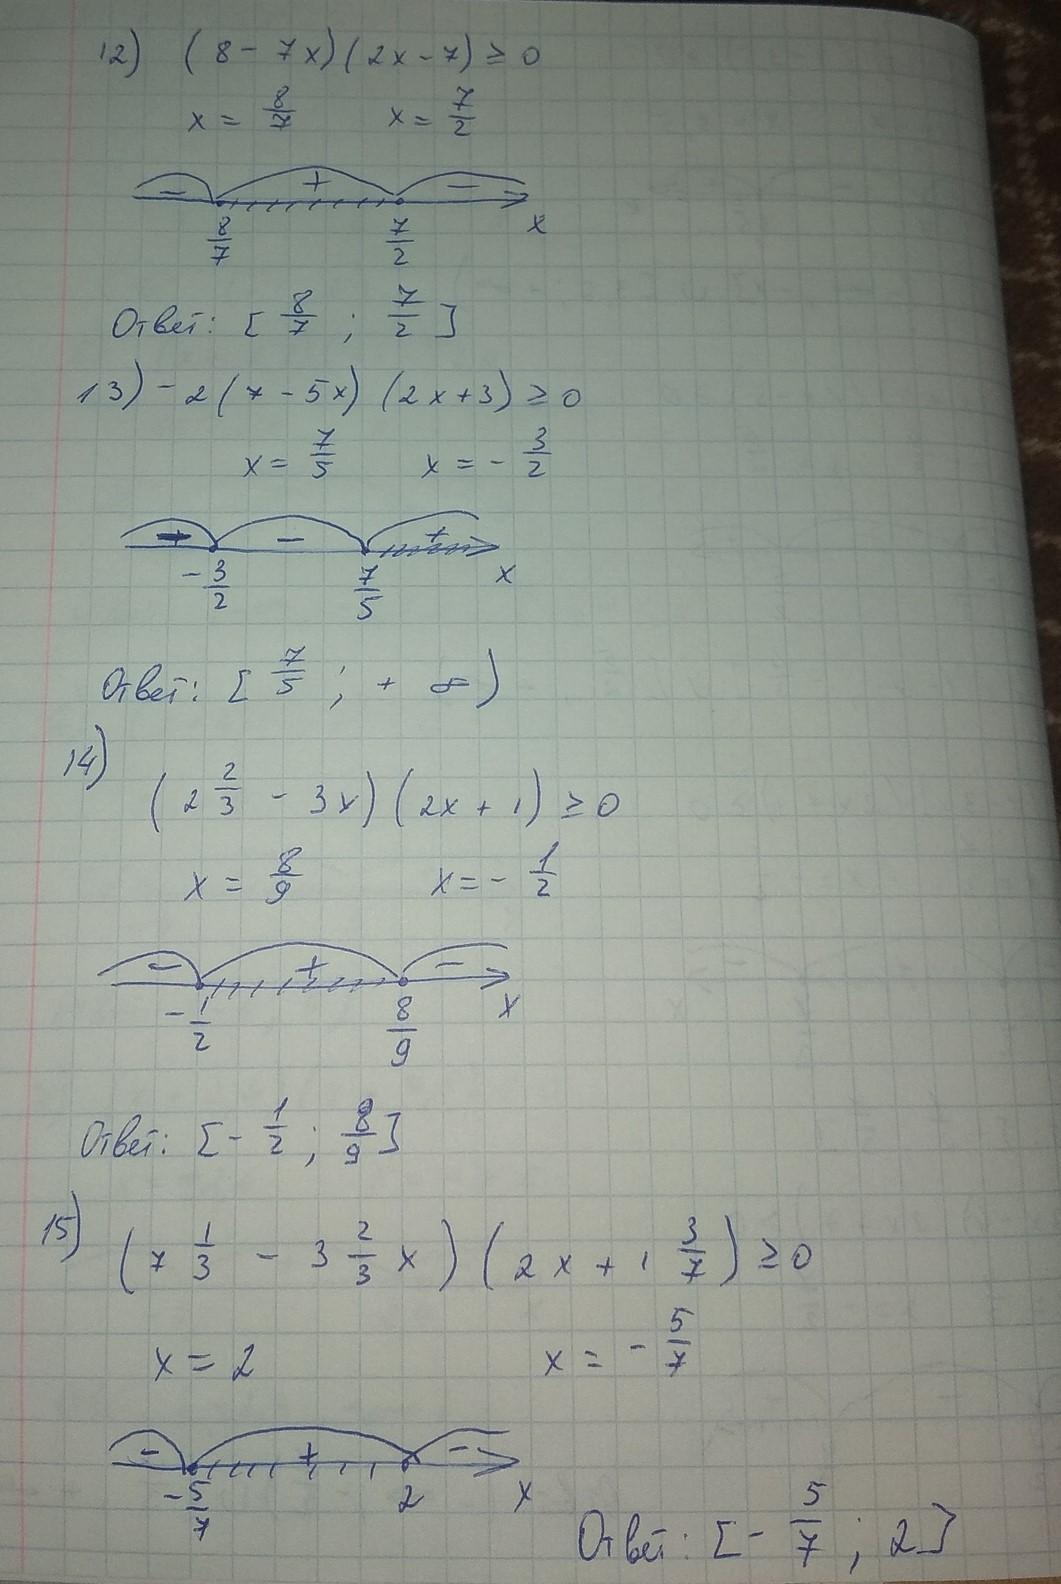 12) (8 - 7x)(2x - 7) ≥ 0
x = 8/7 x = 7/2
- + -
8/7 7/2 x
Ответ: [8/7 ; 7/2]
13) -2(7 - 5x)(2x + 3) ≥ 0
x = 7/5 x = -3/2
+ - +
-3/2 7/5 x
Ответ: [7/5 ; +∞)
14) (2 2/3 - 3x)(2x + 1) ≥ 0
x = 8/9 x = -1/2
- + -
-1/2 8/9 x
Ответ: [-1/2 ; 8/9]
15) (7 1/3 - 3 2/3 x)(2x + 1 3/7) ≥ 0
x = 2 x = -5/7
- + -
-5/7 2 x
Ответ: [-5/7 ; 2]